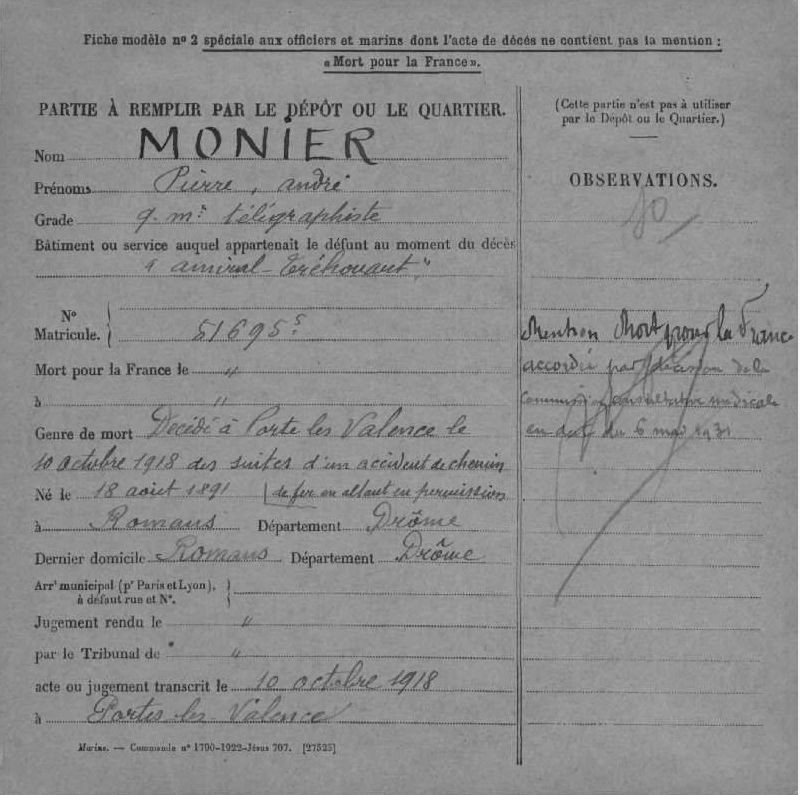 Fiche modèle nº 2 spéciale aux officiers et marins dont l'acte de décés ne contient pas la mention :
« Mort pour la France ».
PARTIE À REMPLIR PAR LE DÉPÔT OU LE QUARTIER.
Nom MONIER
Prénoms Pierre, andré
Grade q. mre télégraphiste
Bâtiment ou service auquel appartenait le défunt au moment du décès
"amiral-Tréhouart"
Nº
Matricule. 51695 5
Mort pour la France le "
à "
Genre de mort Décédé à Porte les Valence le
10 octobre 1918 des suites d'un accident de chemin
de fer en allant en permission
Né le 18 août 1891
à Romans Département Drôme
Dernier domicile Romans Département Drôme
Arrt municipal (pr Paris et Lyon),
à défaut rue et Nº.
Jugement rendu le "
par le Tribunal de "
acte ou jugement transcrit le 10 octobre 1918
à Portes les Valence
Marine. — Commande nº 1790-1922-Jésus 707. [27525]
(Cette partie n'est pas à utiliser
par le Dépôt ou le Quartier.)
OBSERVATIONS.
Mention Mort pour la France
accordée par décision de la
commission consultative médicale
en date du 6 mai 1931